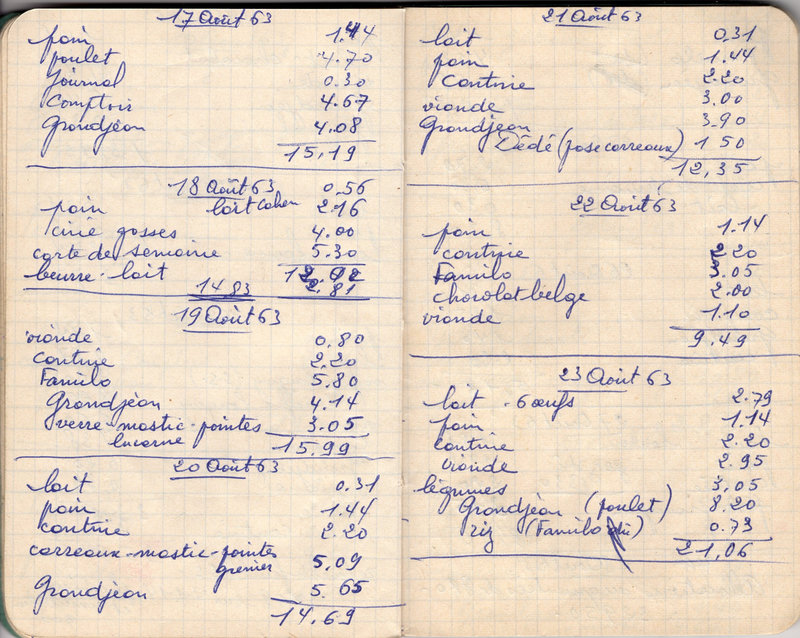 17 Août 63
pain 1.44
poulet 4.70
Journal 0.30
Comptoir 4.67
Grandjean 4.08
15,19
18 Août 63 0,56
pain lait Cohen 2.16
ciné gosses 4.00
carte de semaine 5.30
beurre. lait 12.02
14 83 2,81
19 Août 63
viande 0,80
Cantine 2.20
Familo 5.80
Grandjean 4.14
verre - mastic - pointes 3.05
lucarne 15,99
20 Août 63
lait 0.31
pain 1.44
cantine 2.20
carreaux - mastic - pointes
grenier 5,09
Grandjean 5.65
14.69
21 Août 63
lait 0.31
pain 1.44
Cantine 2.20
viande 3.00
Grandjean 3.90
Dédé (pose carreaux) 1 50
12,35
22 Août 63
pain 1.14
cantine 2.20
Familo 3.05
chocolat belge 2.00
viande 1.10
9.49
23 Août 63
lait - 6 œufs 2.79
pain 1.14
cantine 2.20
viande 2.95
légumes 3,05
Grandjean (poulet) 8.20
riz (Familo 0.73
21,06